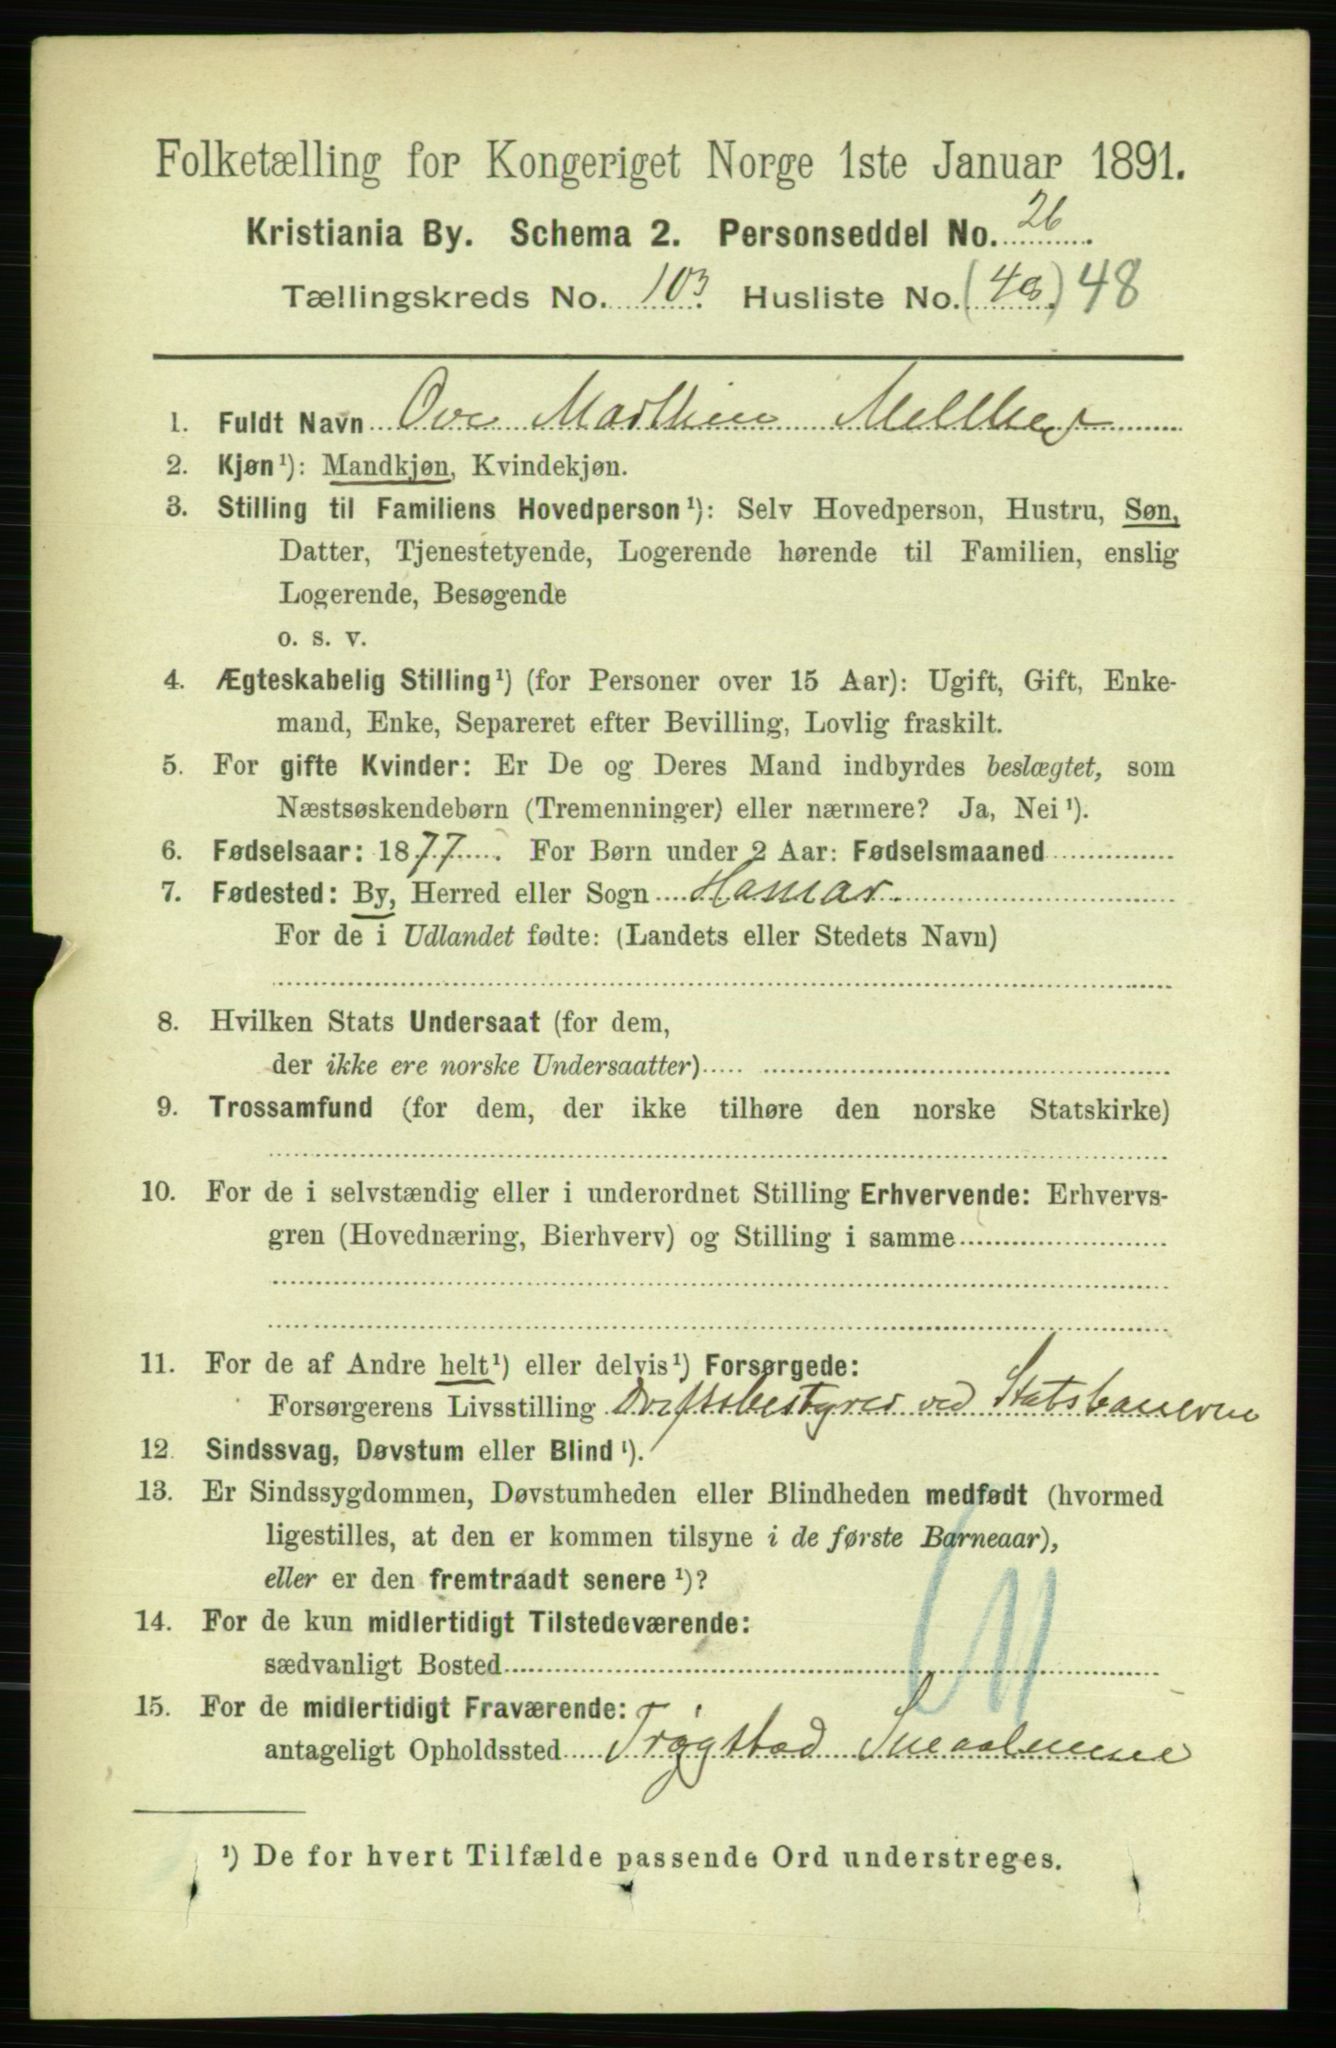 Folketælling for Kongeriget Norge 1ste Januar 1891.
Kristiania By. Schema 2. Personseddel No. 26
Tællingskreds No. 103 Husliste No. (48) 48
1. Fuldt Navn Ove Mathias
2. Kjøn¹): Mandkjøn, Kvindekjøn.
3. Stilling til Familiens Hovedperson¹): Selv Hovedperson, Hustru, Søn,
Datter, Tjenestetyende, Logerende hørende til Familien, enslig
Logerende, Besøgende
o. s. v.
4. Ægteskabelig Stilling¹) (for Personer over 15 Aar): Ugift, Gift, Enke-
mand, Enke, Separeret efter Bevilling, Lovlig fraskilt.
5. For gifte Kvinder: Er De og Deres Mand indbyrdes beslægtet, som
Næstsøskendebørn (Tremenninger) eller nærmere? Ja, Nei¹).
6. Fødselsaar: 1877. For Børn under 2 Aar: Fødselsmaaned
7. Fødested: By, Herred eller Sogn Hamar
For de i Udlandet fødte: (Landets eller Stedets Navn)
8. Hvilken Stats Undersaat (for dem,
der ikke ere norske Undersaatter)
9. Trossamfund (for dem, der ikke tilhøre den norske Statskirke)
10. For de i selvstændig eller i underordnet Stilling Erhvervende: Erhvervs-
gren (Hovednæring, Bierhverv) og Stilling i samme
11. For de af Andre helt¹) eller delvis¹) Forsørgede:
Forsørgerens Livsstilling Driftsbestyrer ved Statsbanerne
12. Sindssvag, Døvstum eller Blind¹).
13. Er Sindssygdommen, Døvstumheden eller Blindheden medfødt (hvormed
ligestilles, at den er kommen tilsyne i de første Barneaar),
eller er den fremtraadt senere¹)?
14. For de kun midlertidigt Tilstedeværende:
sædvanligt Bosted
15. For de midlertidigt Fraværende:
antageligt Opholdssted Trøgstad Smaalenene
¹) De for hvert Tilfælde passende Ord understreges.